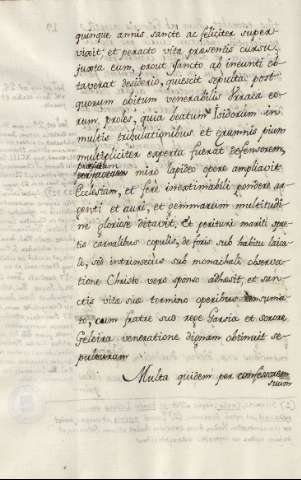 quinque annis sancte ac feliciter super
vixit; et peracto vitæ præsentis cursu,
juxta eum, prout sancto ab ineunti ob
taverat desiderio, quiescit sepulta post
quorum obitum venerabilis Urraca eo
rum, proles, quia beatum Isidorum in
multis tribulationibus et ærumnis pium
multipliciter experta fuerat defensorem,
miro lapideo opere ampliavit
Ecclesiam, et fere inextimabili pondere ar
genti et auri, et gemmarum multitudi
ne gloriose ditavit. Et perituri mariti spre
tis carnalibus copulis, de foris sub habitu laica
le, sed intrinsecus sub monachali observa
tione Christo vero sponso adhesit, et san
ctis vita sua termino operibus consumma
to, cum fratre suo rege Garsia et sorore
Geloira veneratione dignam obtinuit se
pulturam
Multa quidem per confessorem
suum